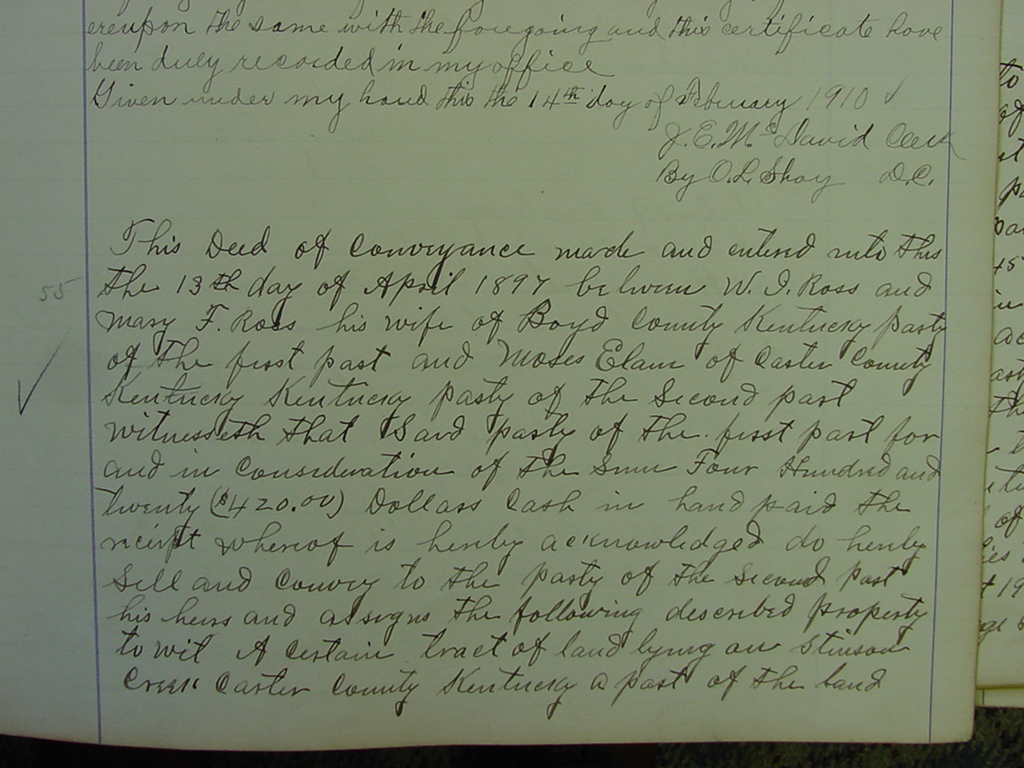 ereupon the same with the foregoing and this certificate have
been duly recorded in my office
Given under my hand this the 14th day of February 1910
J. E. McDavid Clerk
By O. L. Shay D.C.
This Deed of Conveyance made and enterd into this
55 the 13th day of April 1897 between W. I. Ross and
Mary F. Ross his wife of Boyd County Kentucky party
of the first part and Moses Elam of Carter County
Kentucky Kentucky party of the Second part
Witnesseth that Said party of the first part for
and in Consideration of the Sum Four Hundred and
twenty ($420.00) Dollars Cash in hand paid the
receipt whereof is hereby acknowledged do hereby
Sell and Convey to the party of the Second part
his heirs and assigns the following described property
to wit A Certain tract of land lying on Stinson
Creek Carter County Kentucky a part of the land